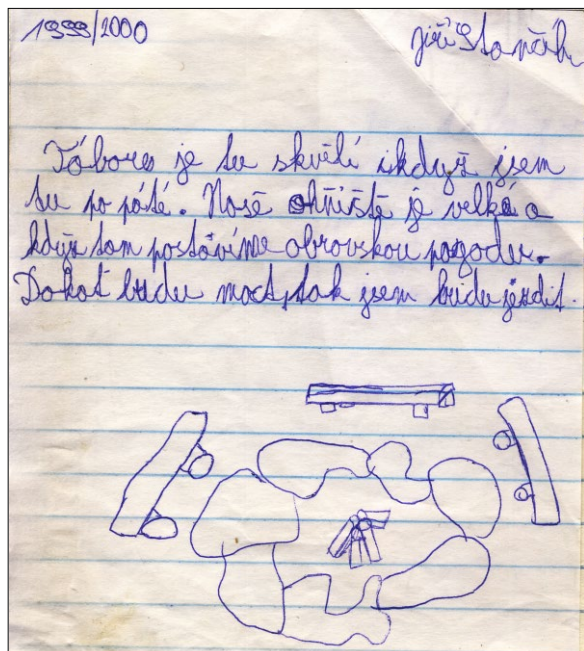 1999/2000
Jiří
Tábores je tu skvělí ikdyž jsem
tu po páté. Nosé ohňiště je velká a
když tam postávíme obrovskou pagodu.
Dokať budu moct, tak jsem budu jezdit.